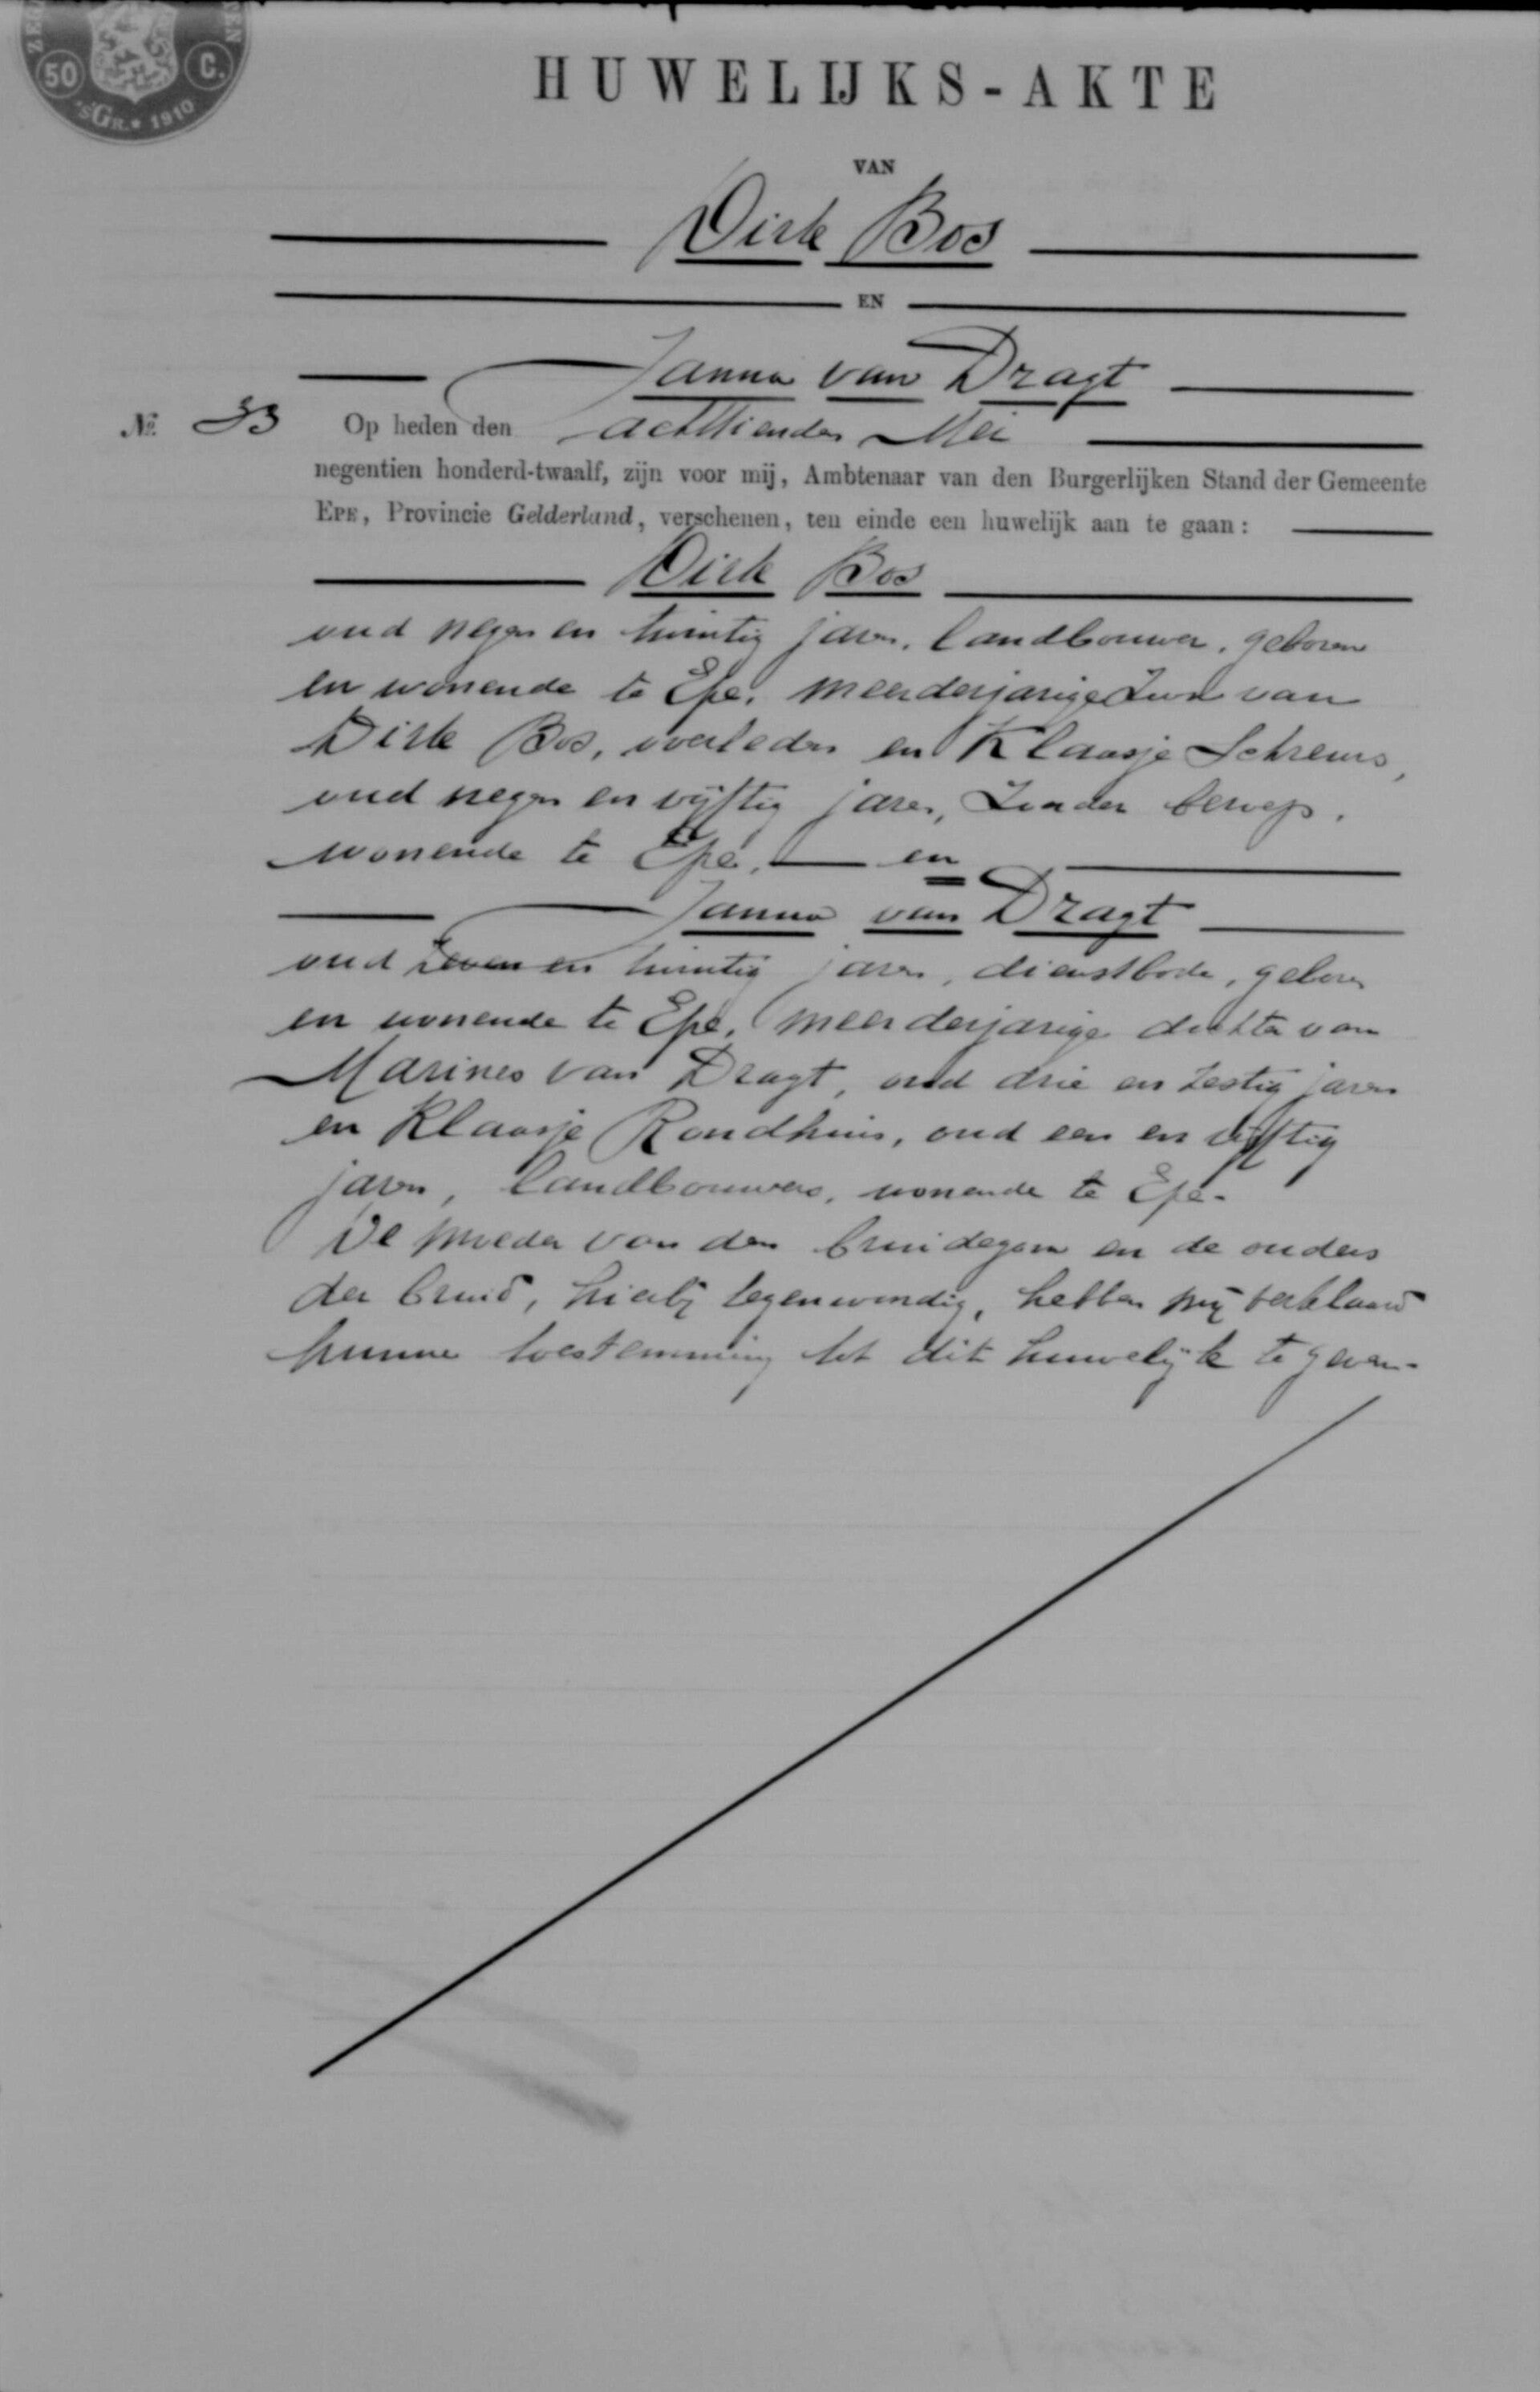 ZEG
EN
50 C.
'SGR. * 1910
HUWELIJKS-AKTE
VAN
Dirk Bos
EN
Janna van Dragt
No. 33 Op heden den achttienden Mei
negentien honderd-twaalf, zijn voor mij, Ambtenaar van den Burgerlijken Stand der Gemeente
EPE, Provincie Gelderland, verschenen, ten einde een huwelijk aan te gaan:
Dirk Bos
oud negen en twintig jaren, landbouwer, geboren
en wonende te Epe, meerderjarige zoon van
Dirk Bos, overleden en Klaasje Schreurs,
oud negen en vijftig jaren, zonder beroep,
wonende te Epe, en
Janna van Dragt
oud zeven en twintig jaren, dienstbode, geboren
en wonende te Epe, meerderjarige dochter van
Marines van Dragt, oud drie en zestig jaren
en Klaasje Rondhuis, oud een en vijftig
jaren, landbouwers, wonende te Epe.
De moeder van den bruidegom en de ouders
der bruid, hierbij tegenwoordig, hebben mij verklaard
hunne toestemming tot dit huwelijk te geven.